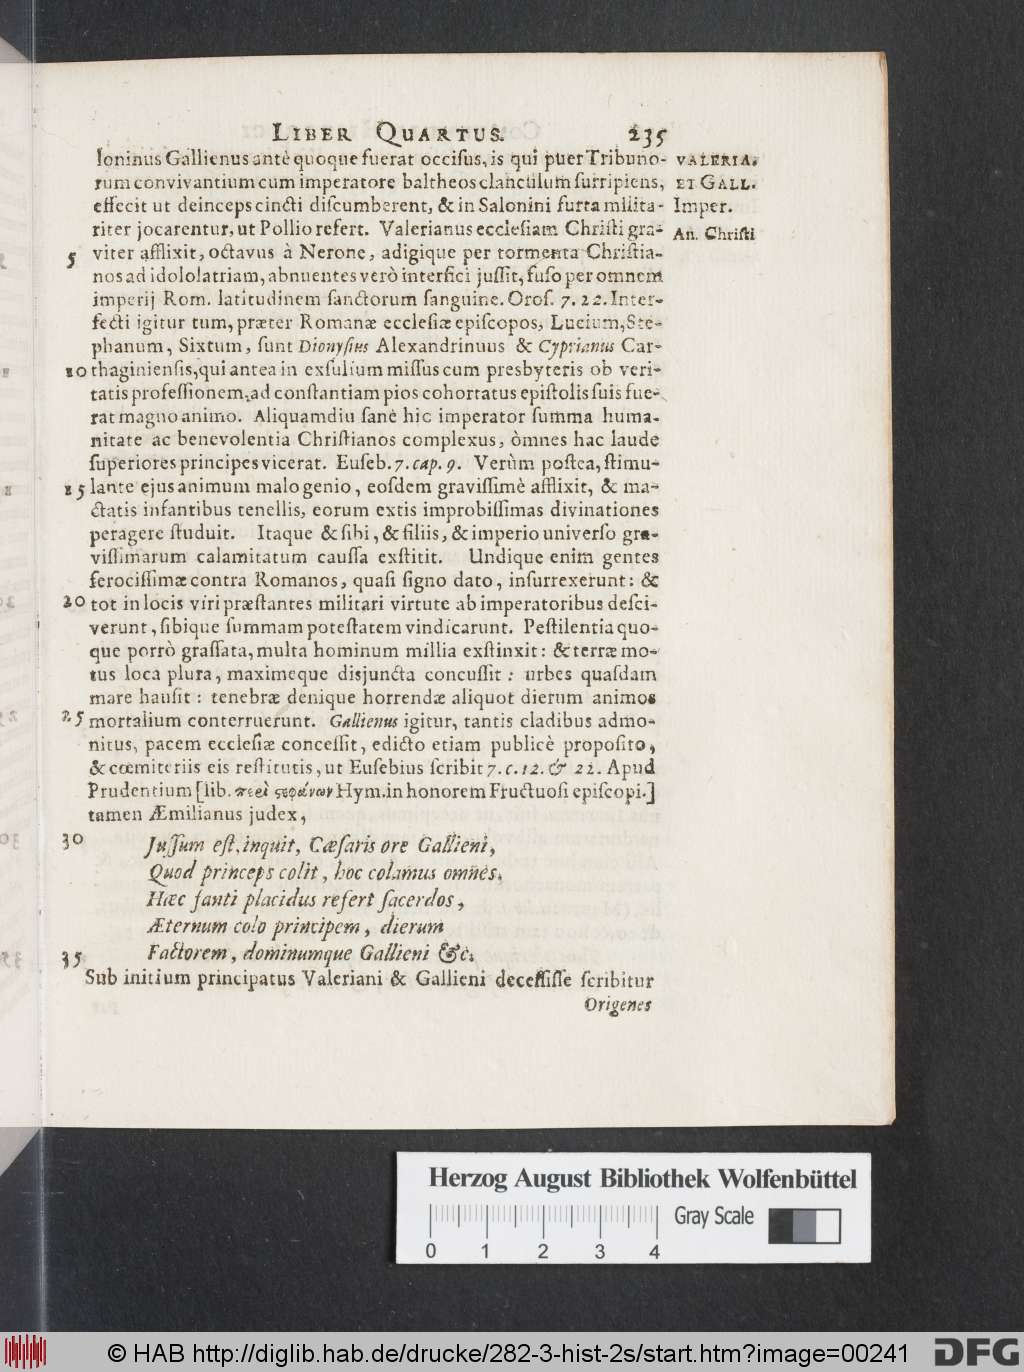 LIBER QUARTUS. 235
loninus Gallienus antè quoque fuerat occisus, is qui puer Tribuno- VALERIA.
rum convivantium cum imperatore baltheos clanculum surripiens, ET GALL.
effecit ut deinceps cincti discumberent, & in Salonini furta milita- Imper.
riter jocarentur, ut Pollio refert. Valerianus ecclesiam Christi gra- An. Christi
5 viter afflixit, octavus à Nerone, adigique per tormenta Christia-
nos ad idololatriam, abnuentes verò interfici jussit, fuso per omnem
imperij Rom. latitudinem sanctorum sanguine. Oros. 7. 22. Inter-
fecti igitur tum, præter Romanæ ecclesiæ episcopos, Lucium, Ste-
phanum, Sixtum, sunt Dionysius Alexandrinuus & Cyprianus Car-
10 thaginiensis, qui antea in exsulium missus cum presbyteris ob veri-
tatis professionem, ad constantiam pios cohortatus epistolis suis fue-
rat magno animo. Aliquamdiu sanè hic imperator summa huma-
nitate ac benevolentia Christianos complexus, òmnes hac laude
superiores principes vicerat. Euseb. 7. cap. 9. Verùm postea, stimu-
15 lante ejus animum malo genio, eosdem gravissimè afflixit, & ma-
ctatis infantibus tenellis, eorum extis improbissimas divinationes
peragere studuit. Itaque & sibi, & filiis, & imperio universo gra-
vissimarum calamitatum caussa exstitit. Undique enim gentes
ferocissimæ contra Romanos, quasi signo dato, insurrexerunt: &
20 tot in locis viri præstantes militari virtute ab imperatoribus desci-
verunt, sibique summam potestatem vindicarunt. Pestilentia quo-
que porrò grassata, multa hominum millia exstinxit: & terræ mo-
tus loca plura, maximeque disjuncta concussit: urbes quasdam
mare hausit: tenebræ denique horrendæ aliquot dierum animos
25 mortalium conterruerunt. Gallienus igitur, tantis cladibus admo-
nitus, pacem ecclesiæ concessit, edicto etiam publicè proposito,
& cœmiteriis eis restitutis, ut Eusebius scribit 7. c. 12. & 22. Apud
Prudentium [lib. περὶ στεφάνων Hym. in honorem Fructuosi episcopi.]
tamen Æmilianus judex,
30 Jussum est, inquit, Cæsaris ore Gallieni,
Quod princeps colit, hoc colamus omnes.
Hæc fanti placidus refert sacerdos,
Æternum colo principem, dierum
35 Factorem, dominumque Gallieni &c.
Sub initium principatus Valeriani & Gallieni decessisse scribitur
Origenes
Herzog August Bibliothek Wolfenbüttel
Gray Scale
0 1 2 3 4
© HAB http://diglib.hab.de/drucke/282-3-hist-2s/start.htm?image=00241
DFG